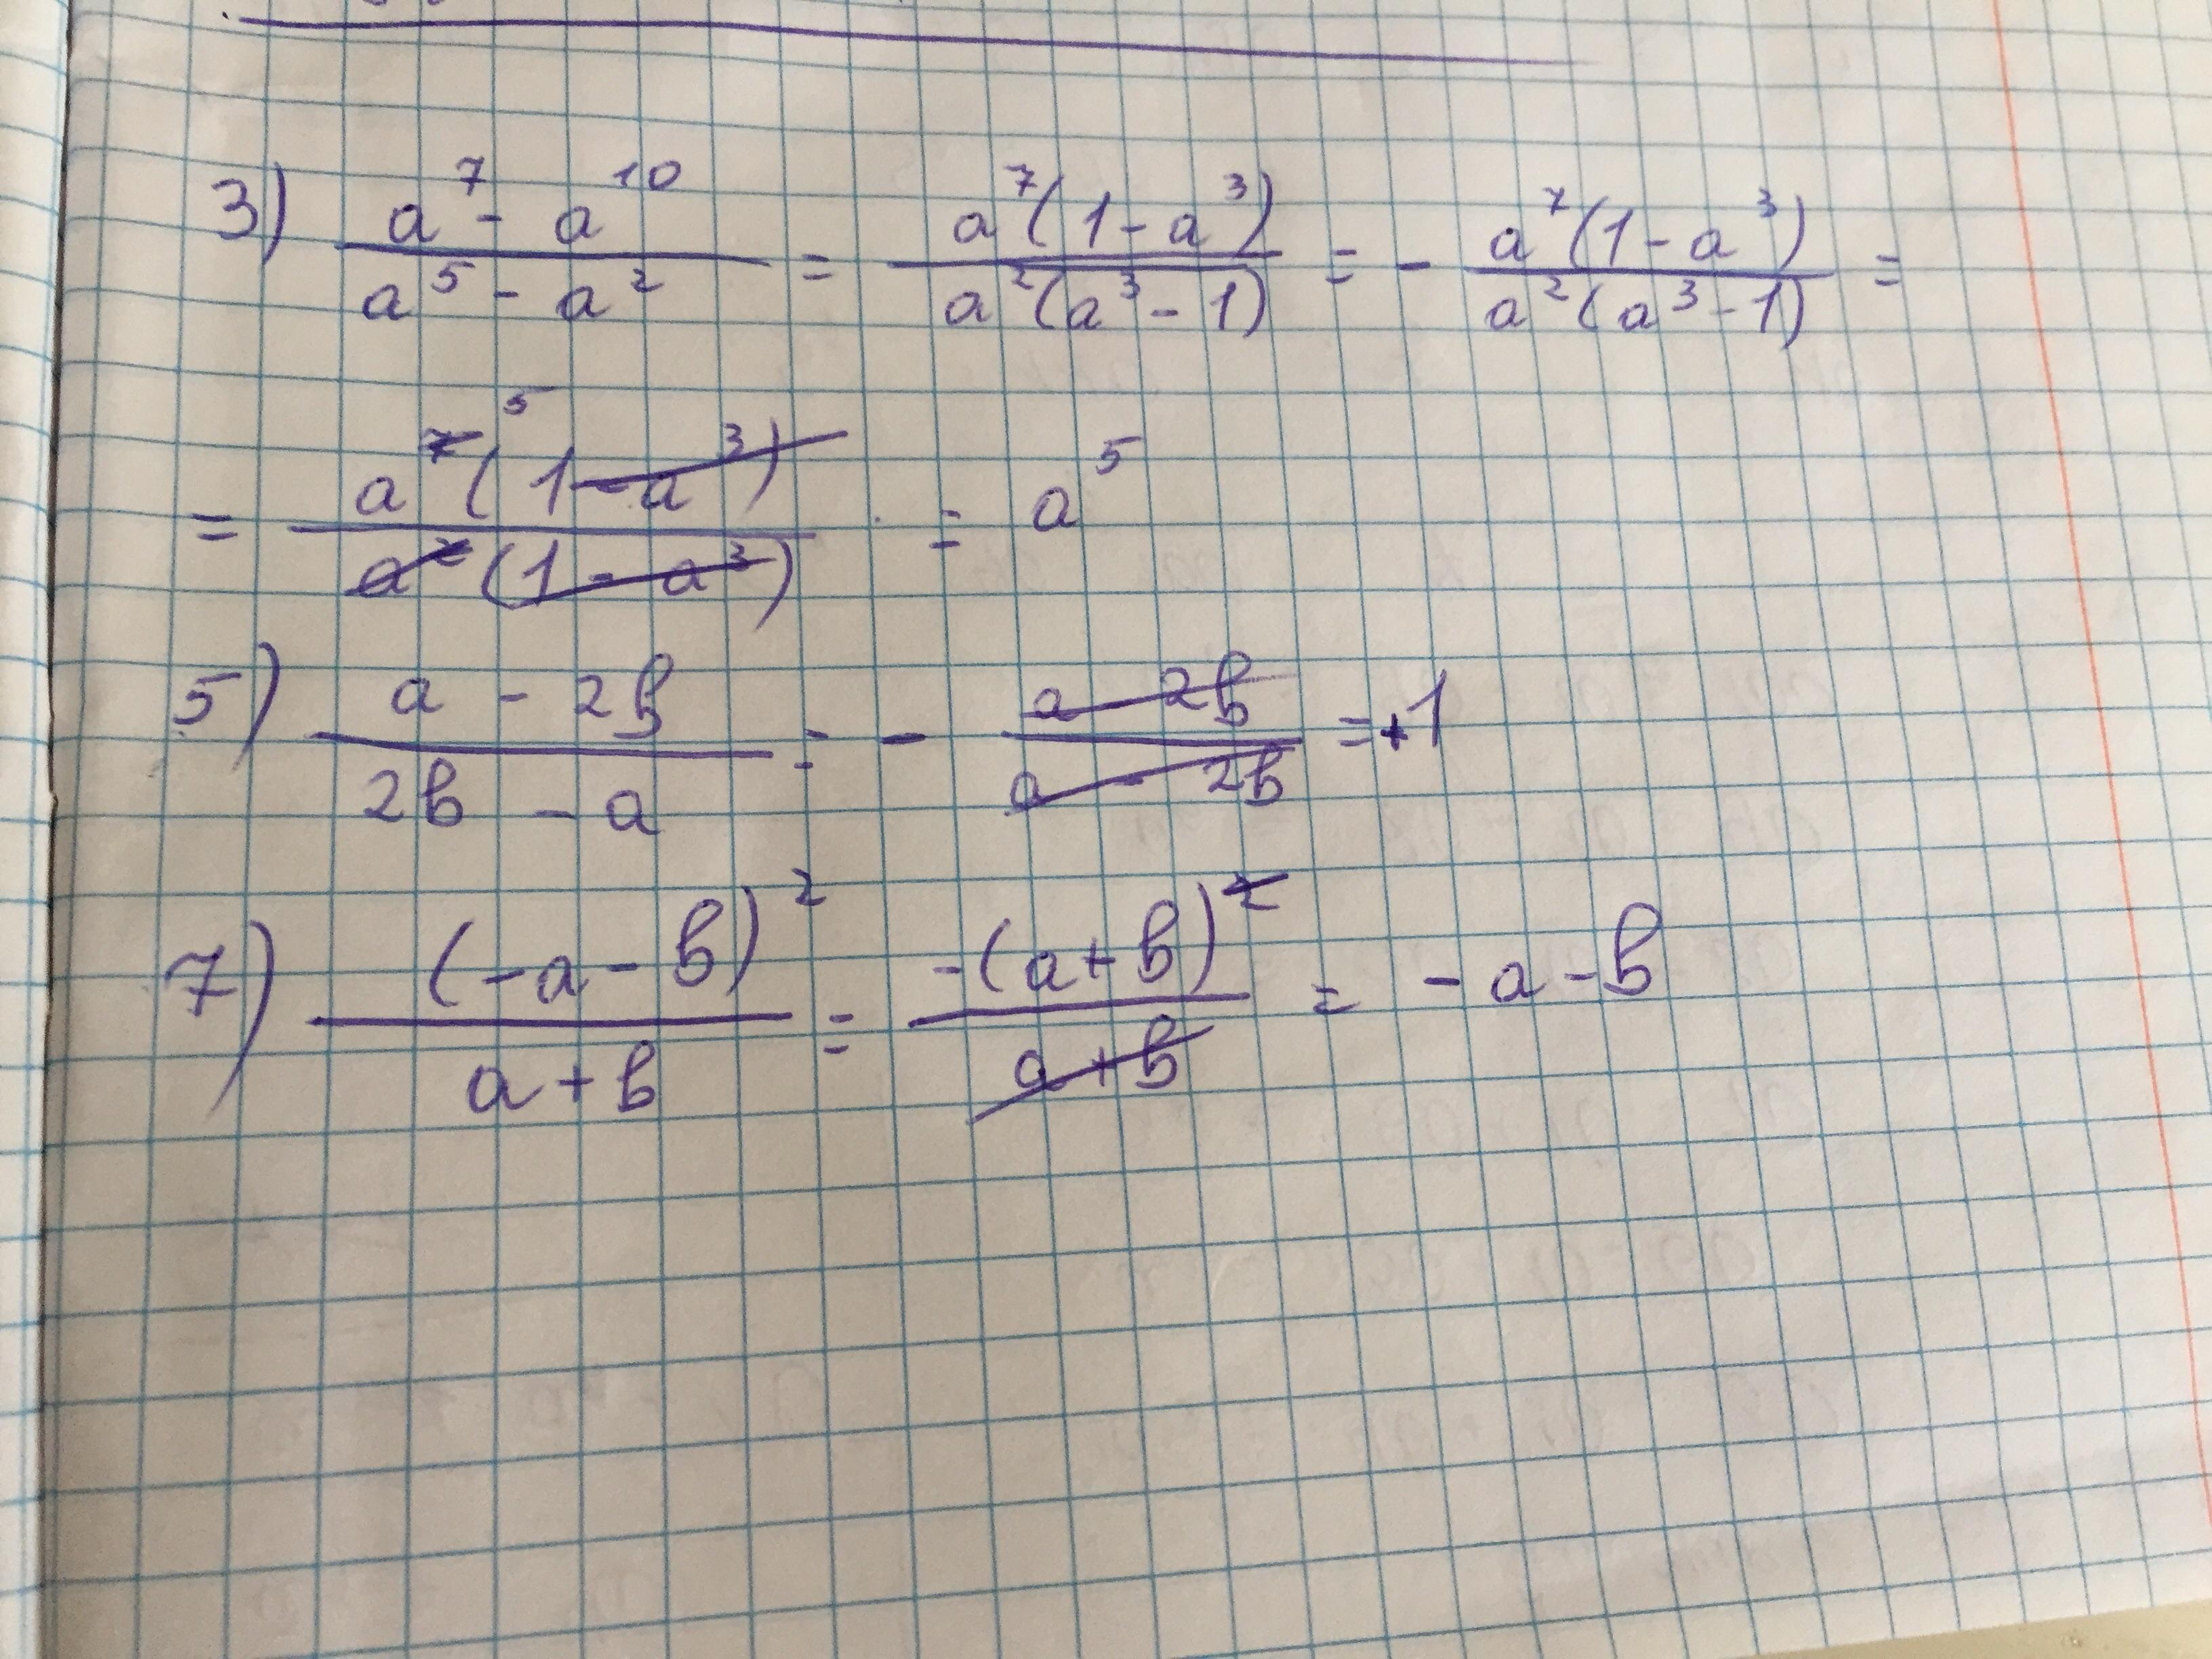 3) (a^7 - a^10)/(a^5 - a^2) = a^7(1 - a^3)/a^2(a^3 - 1) = - a^7(1 - a^3)/a^2(a^3 - 1) =
= a^7 5(1 - a^3)/a^2(1 - a^3) = a^5
5) (a - 2b)/(2b - a) = - (a - 2b)/(a - 2b) = +1
7) (-a - b)^2/(a + b) = -(a + b)^2/(a + b) = - a - b